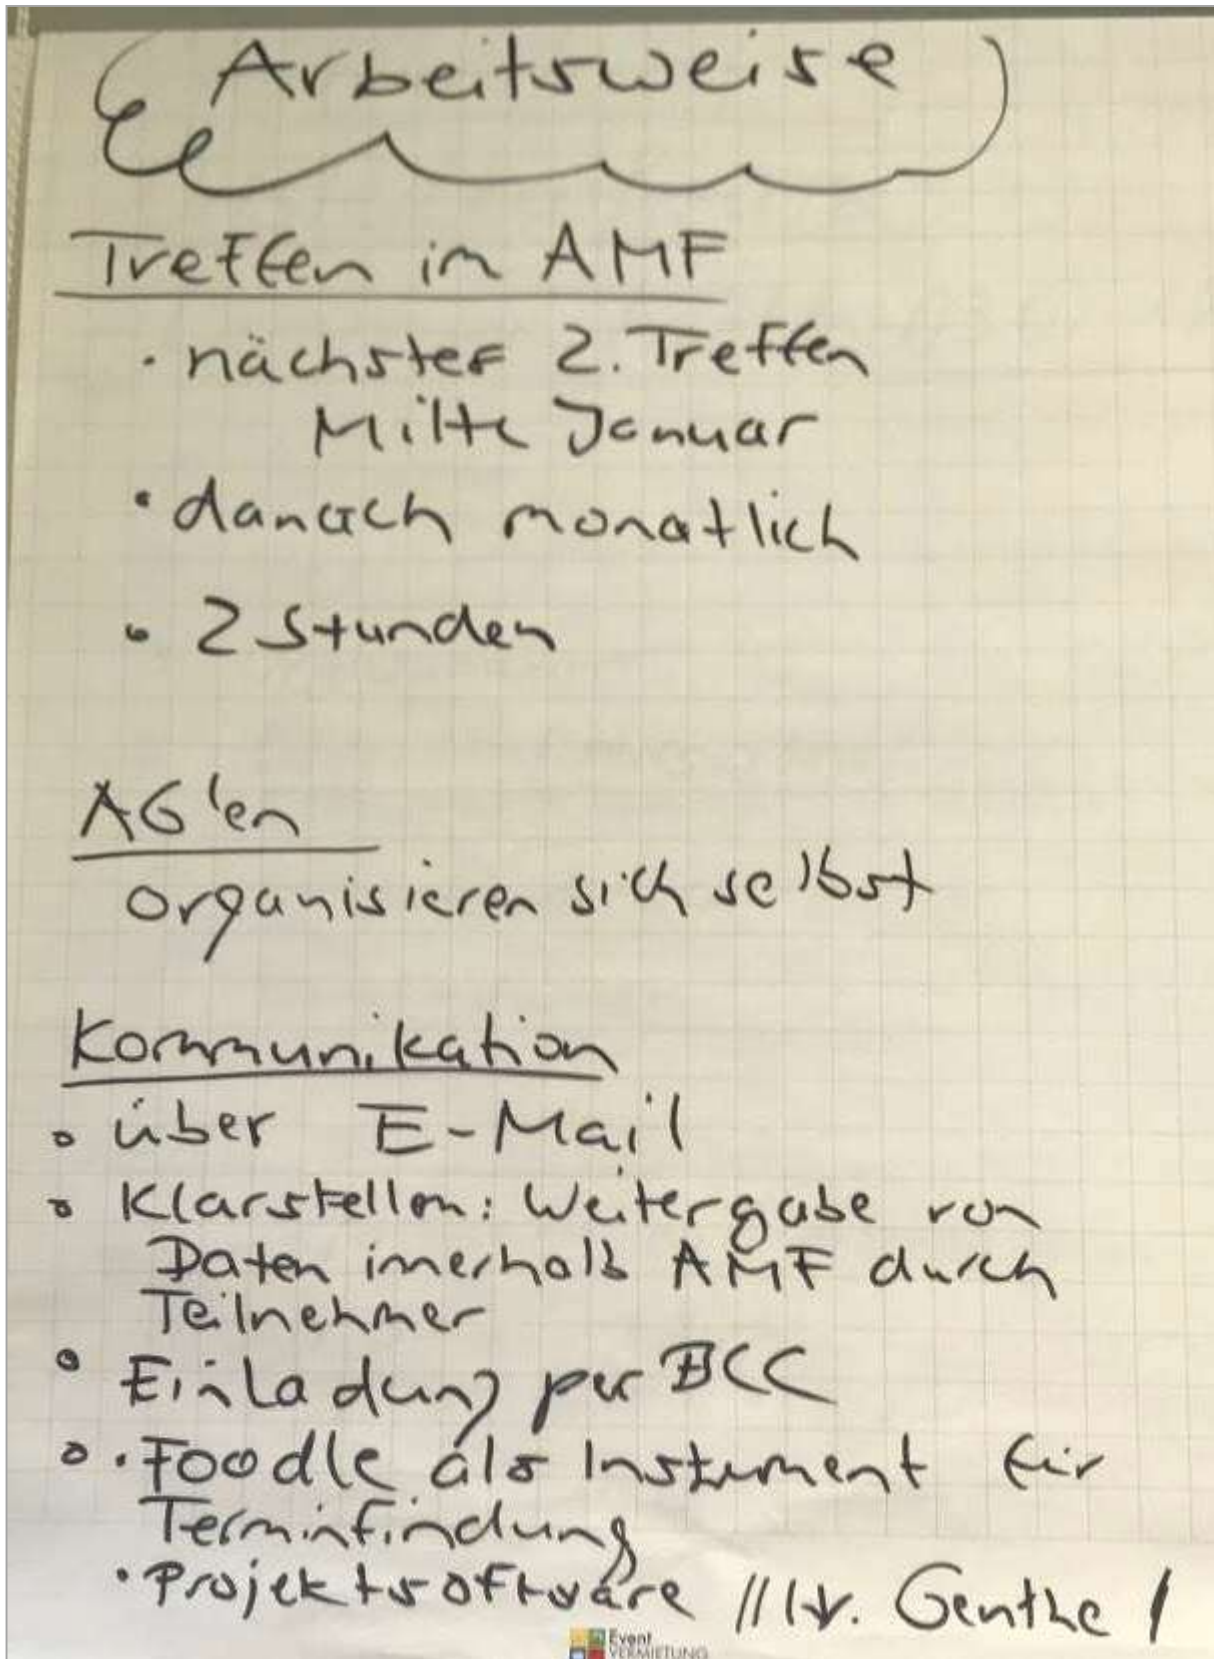 Arbeitsweise
Treffen im AMF
· nächstes 2. Treffen
Mitte Januar
· danach monatlich
· 2 Stunden
AG'en
organisieren sich selbst
Kommunikation
o über E-Mail
o Klarstellen: Weitergabe von
Daten innerhalb AMF durch
Teilnehmer
o Einladung per BCC
o · Foodle als Instrument für
Terminfindung
· Projektsoftware // Genthe /
Event
VERMIETUNG